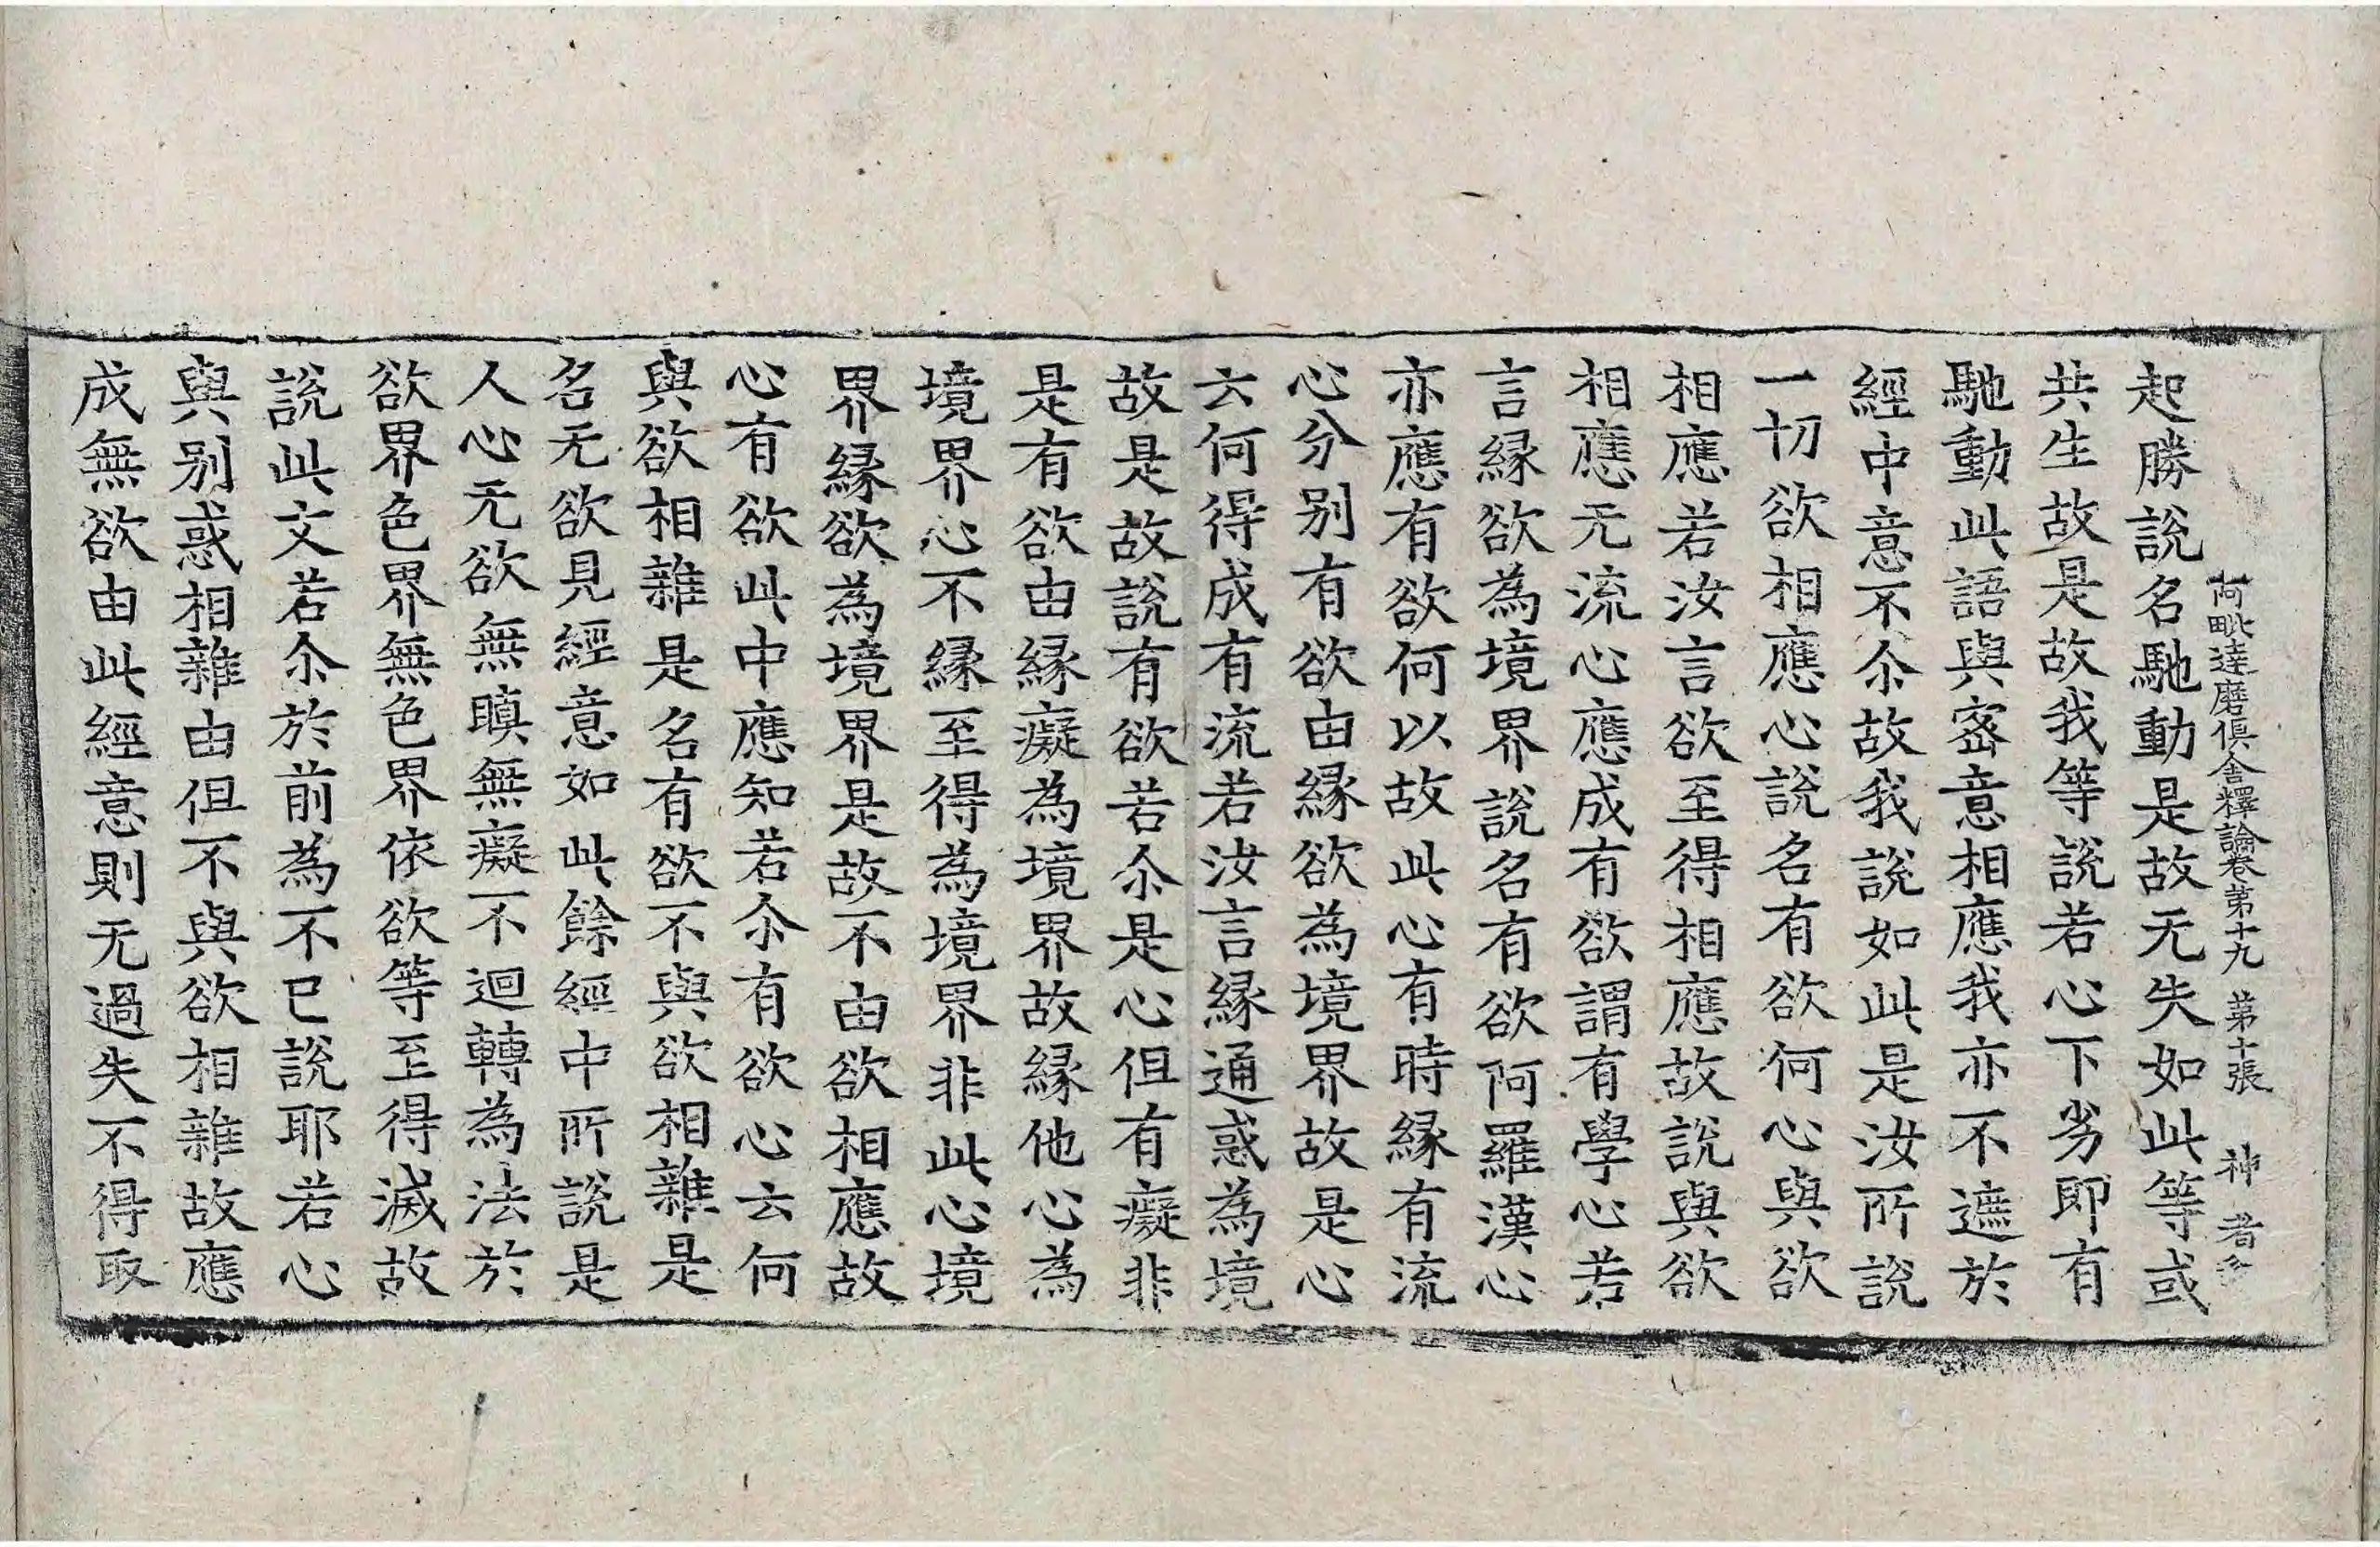 阿毗達磨俱舍釋論卷第十九 第十張 神
起勝說名馳動是故无失如此等或
共生故是故我等說若心下劣即有
馳動此語與宻意相應我亦不遮於
經中意不尒故我說如此是汝所說
一切欲相應心說名有欲何心與欲
相應若汝言欲至得相應故說與欲
相應无流心應成有欲謂有學心若
言縁欲為境界說名有欲阿羅漢心
亦應有欲何以故此心有時縁有流
心分别有欲由縁欲為境界故是心
云何得成有流若汝言縁通惑為境
故是故說有欲若尒是心但有癡非
是有欲由縁癡為境界故縁他心為
境界心不縁至得為境界非此心境
界縁欲為境界是故不由欲相應故
心有欲此中應知若尒有欲心云何
與欲相雜是名有欲不與欲相雜是
名无欲見經意如此餘經中所說是
人心无欲無瞋無癡不迴轉為法於
欲界色界無色界依欲等至得滅故
說此文若尒於前為不已說耶若心
與别惑相雜由但不與欲相雜故應
成無欲由此經意則无過失不得取